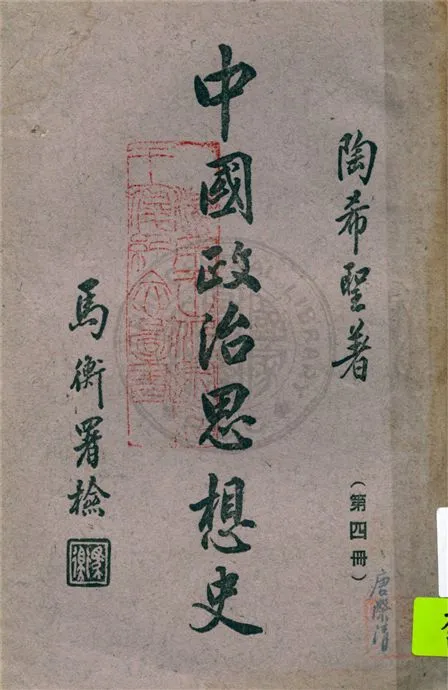 陶希聖著
(第四冊)
唐際清
中國政治思想史
馬衡署檢
馬衡
LIBRARY